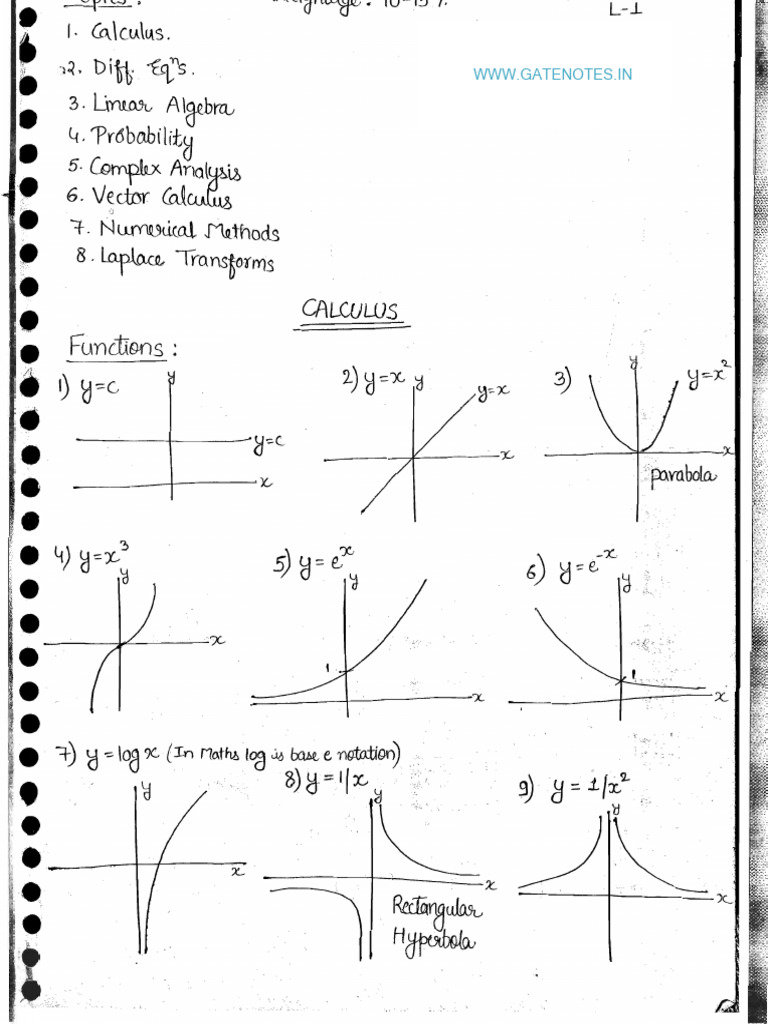 Topics:
L-1
1. Calculus.
2. Diff. Eqⁿs.
WWW.GATENOTES.IN
3. Linear Algebra
4. Probability
5. Complex Analysis
6. Vector Calculus
7. Numerical Methods
8. Laplace Transforms
CALCULUS
Functions:
1) y=c y
y=c
x
2) y=x y
y=x
x
3) y y=x²
x
parabola
4) y=x³
y
x
5) y=eˣ
y
1
x
6) y=e⁻ˣ
y
1
x
7) y=logx (In Maths log is base e notation)
y
x
8) y=1/x
y
x
Rectangular
Hyperbola
9) y=1/x²
y
x